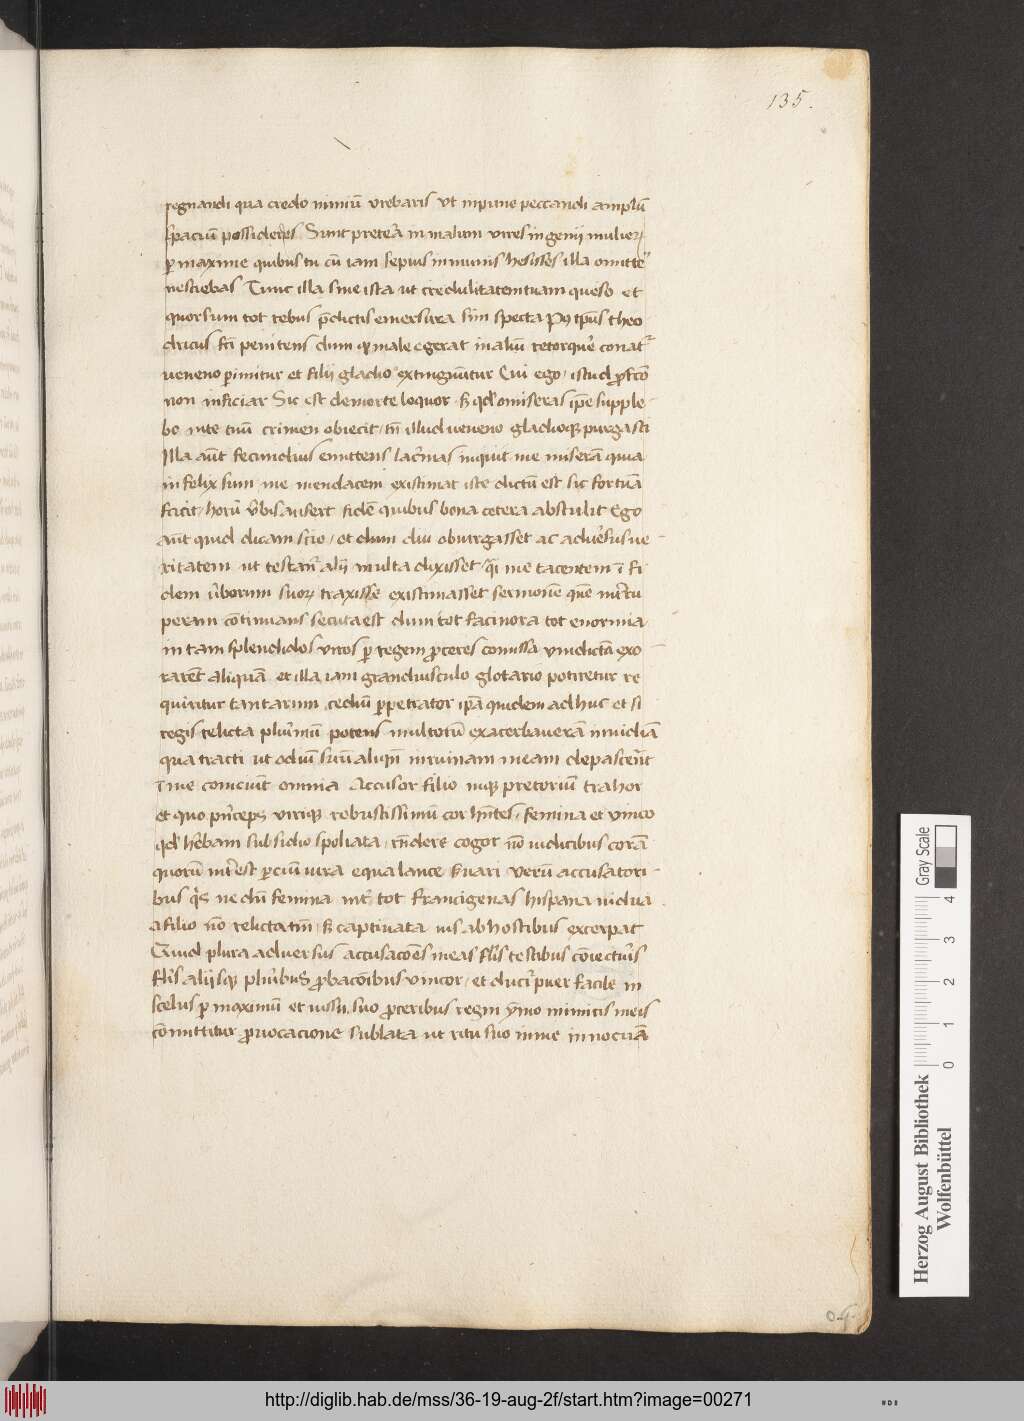 135.
regnandi qua credo nimiū vrebaris vt inpune peccandi amplū
spaciū possideres Sunt preterā in malum vires ingenii mulieꝝ
ꝑ maxime quibus tu cū iam sepius inmunis hesisses illa omitte
nesciebas Tunc illa sine ista ut credulitatem tuam queso et
quorsum tot rebus p̄dictis emersura sim specta theo
dricus penitens dum male egerat in aliū retorquē conat
ueneno ꝑimitur et filii gladio extinguūtur Cui ego istud
non inficiar Sic est de morte loquor omiseras ip̄e supple
bo inte tuū crimen obiecit illud ueneno gladioqꝫ purgasti
Illa aūt fecundius emittens lac̄mas inquit me miserā quia
infelix sum me mendacem existimat iste dictū est sic fortuā
horū v̄bis aufert fidē quibus bona cetera abstulit Ego
aūt quid dicam scio et dum diu obiurgasset ac adūsus ue
ritatem ut alij multa dixisset me tacentem ī fi
dem v̄borum suoꝝ traxisse existimasset sermonē quē
peram cōtinuans secuta est dum tot facinora tot enormia
in tam splendidos viros ꝑ regem ꝓceres comissa vindictā exo
rarēt aliquā et illa iam grandiusculo glotario potiretur re
quiritur tantarum cediū ꝑpetrator ip̄a quidem adhuc et si
regis relicta plurimū potens multorū exacerbauerā inuidiā
qua tracti ut odiū suū in ruinam meam
ī me coniciūt omnia Accusor filio inqꝫ pretoriū trahor
et quo pn̄ceps virique robustissimū cor hn̄tes femina et vnico
qd̄ hēbam subsidio spoliata rn̄dere cogor nō iudicibus corā
quorū int̄est ꝑ ciuū iura equa lance verū accusatori
bus ne dū femina int̄ tot francigenas hispana uidua
a filio nō relicta captiuata uis ab hostibus excerpat
Quid plura aduersus accusacōes meas fl̄is testibus
fl̄is alijsqꝫ plūbus ꝓbacōibus vincor et puer facile in
scelus ꝑ maximū et iussu suo ꝓceribus regni inimicis meis
cōmittitur ꝓuocacione sublata ut ritu suo in me innocuā
Gray Scale
4
3
2
1
0
Herzog August Bibliothek
Wolfenbüttel
http://diglib.hab.de/mss/36-19-aug-2f/start.htm?image=00271